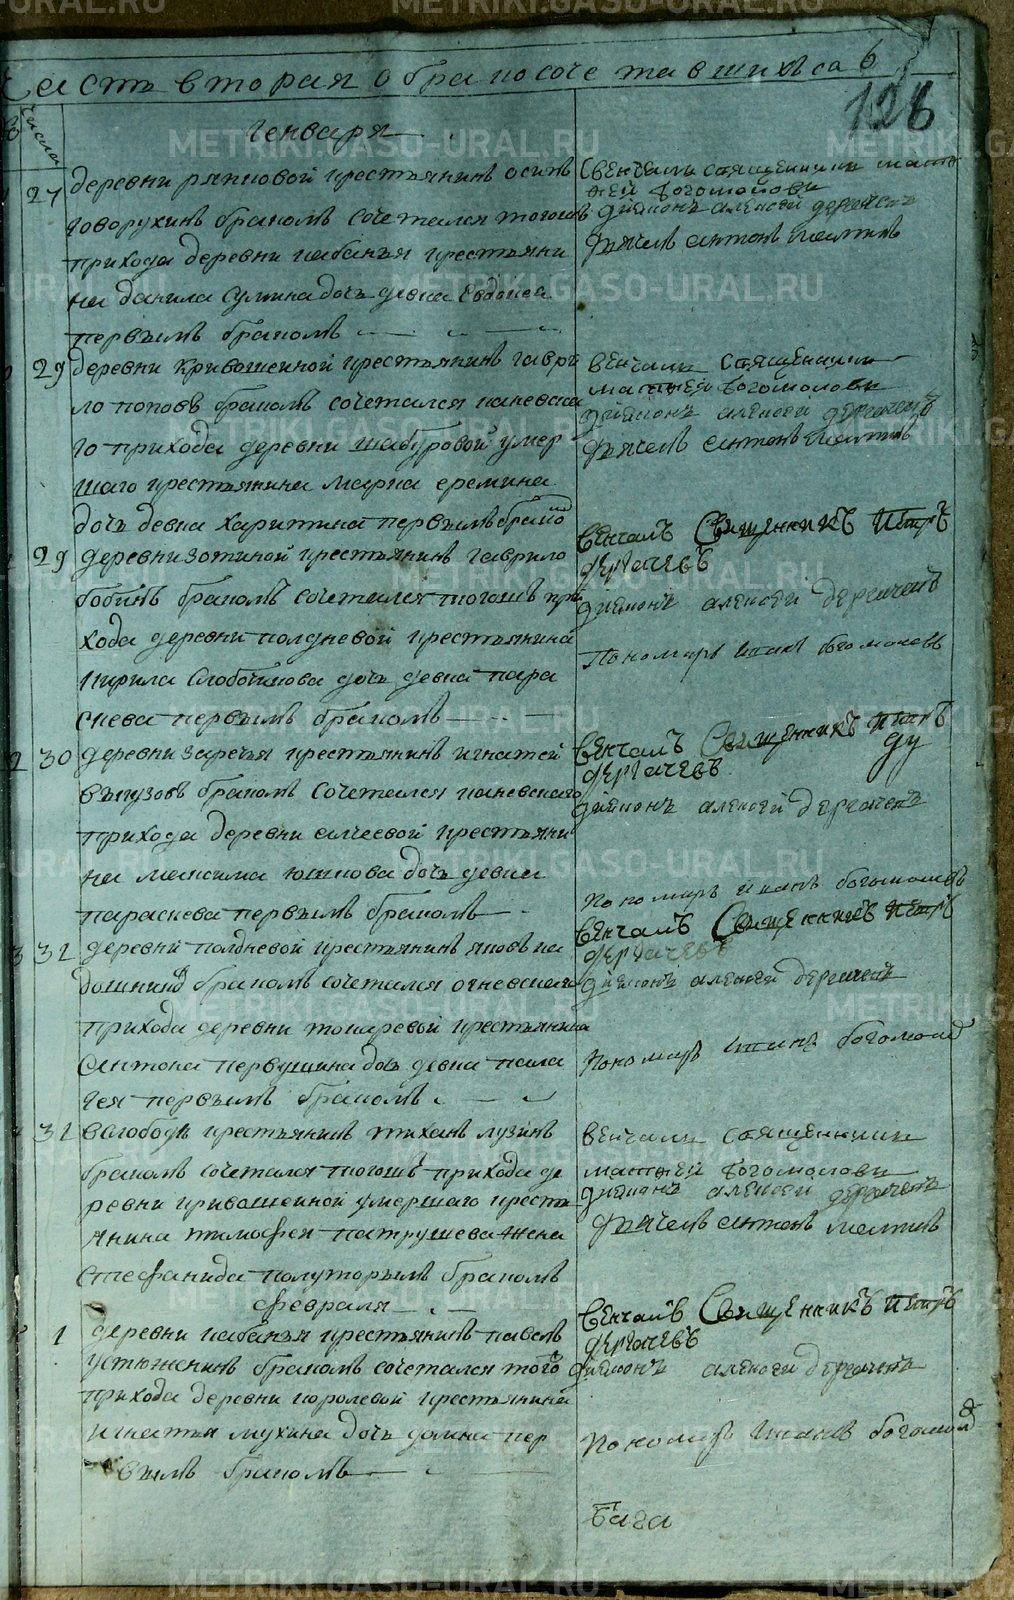 часть вторая о бракосочетавшихъся 6
126
числа
генваря
27 деревни ряпковой крестьянинъ осипъ
говорухинъ бракомъ сочетался тогожъ
прихода деревни кабанья крестьяни
на данила сулина дочь девка Евдокея
первымъ бракомъ
венчали священники матв
ѣей богомолови
дияконъ алексей дергачевъ
дьячекъ антонъ
29 деревни кривошеиной крестьянинъ гаври
ло поповъ бракомъ сочетался каневска
го прихода деревни шабуровой умер
шаго крестьянина марка еремина
дочь девка харитина первымъ бракомъ
венчали священники
матѳей богомолови
дияконъ алексей дергачевъ
дьячекъ антонъ
29 деревни зотиной крестьянинъ гаврило
бобинъ бракомъ сочетался тогожъ при
хода деревни полдневой крестьянина
кирила слобочикова дочь девка пара
скева первымъ бракомъ
венчалъ Священникъ петръ
дергачевъ
диякономъ алексей дергачевъ
Пономарь иванъ богомоловъ
30 деревни заречья крестьянинъ игнатей
вьпузовъ бракомъ сочетался каневскаго
прихода деревни алчеевой крестьяни
на максима юшкова дочь девка
параскева первымъ бракомъ
венчалъ Священникъ петръ
дергачевъ
диякономъ алексей дергачевъ
пономарь иванъ богомоловъ
31 деревни полдневой крестьянинъ яковъ ка
дошниковъ бракомъ сочетался огневскаго
прихода деревни токаревой крестьянина
антона первушина дочь девка пала
гея первымъ бракомъ
венчалъ Священникъ петръ
дергачевъ
диякономъ алексей дергачевъ
пономарь иванъ богомолов
31 вслободѣ крестьянинъ тиханъ лузинъ
бракомъ сочетался тогожъ прихода де
ревни кривошеиной умершаго кресть
янина тимофея патрушева жена
стефанида полуторымъ бракомъ
венчали священники
матѳей богомолови
диякономъ алексей дергачевъ
дьячекъ антонъ
февраля
1 деревни кабанья крестьянинъ павелъ
устюженинъ бракомъ сочетался тогожъ
прихода деревни королевой крестьянина
игнатья мухина дочь домна пер
вымъ бракомъ
венчалъ Священникъ петръ
дергачевъ
диякономъ алексей дергачевъ
пономарь иванъ богомолов
METRIKI.GASO-URAL.RU